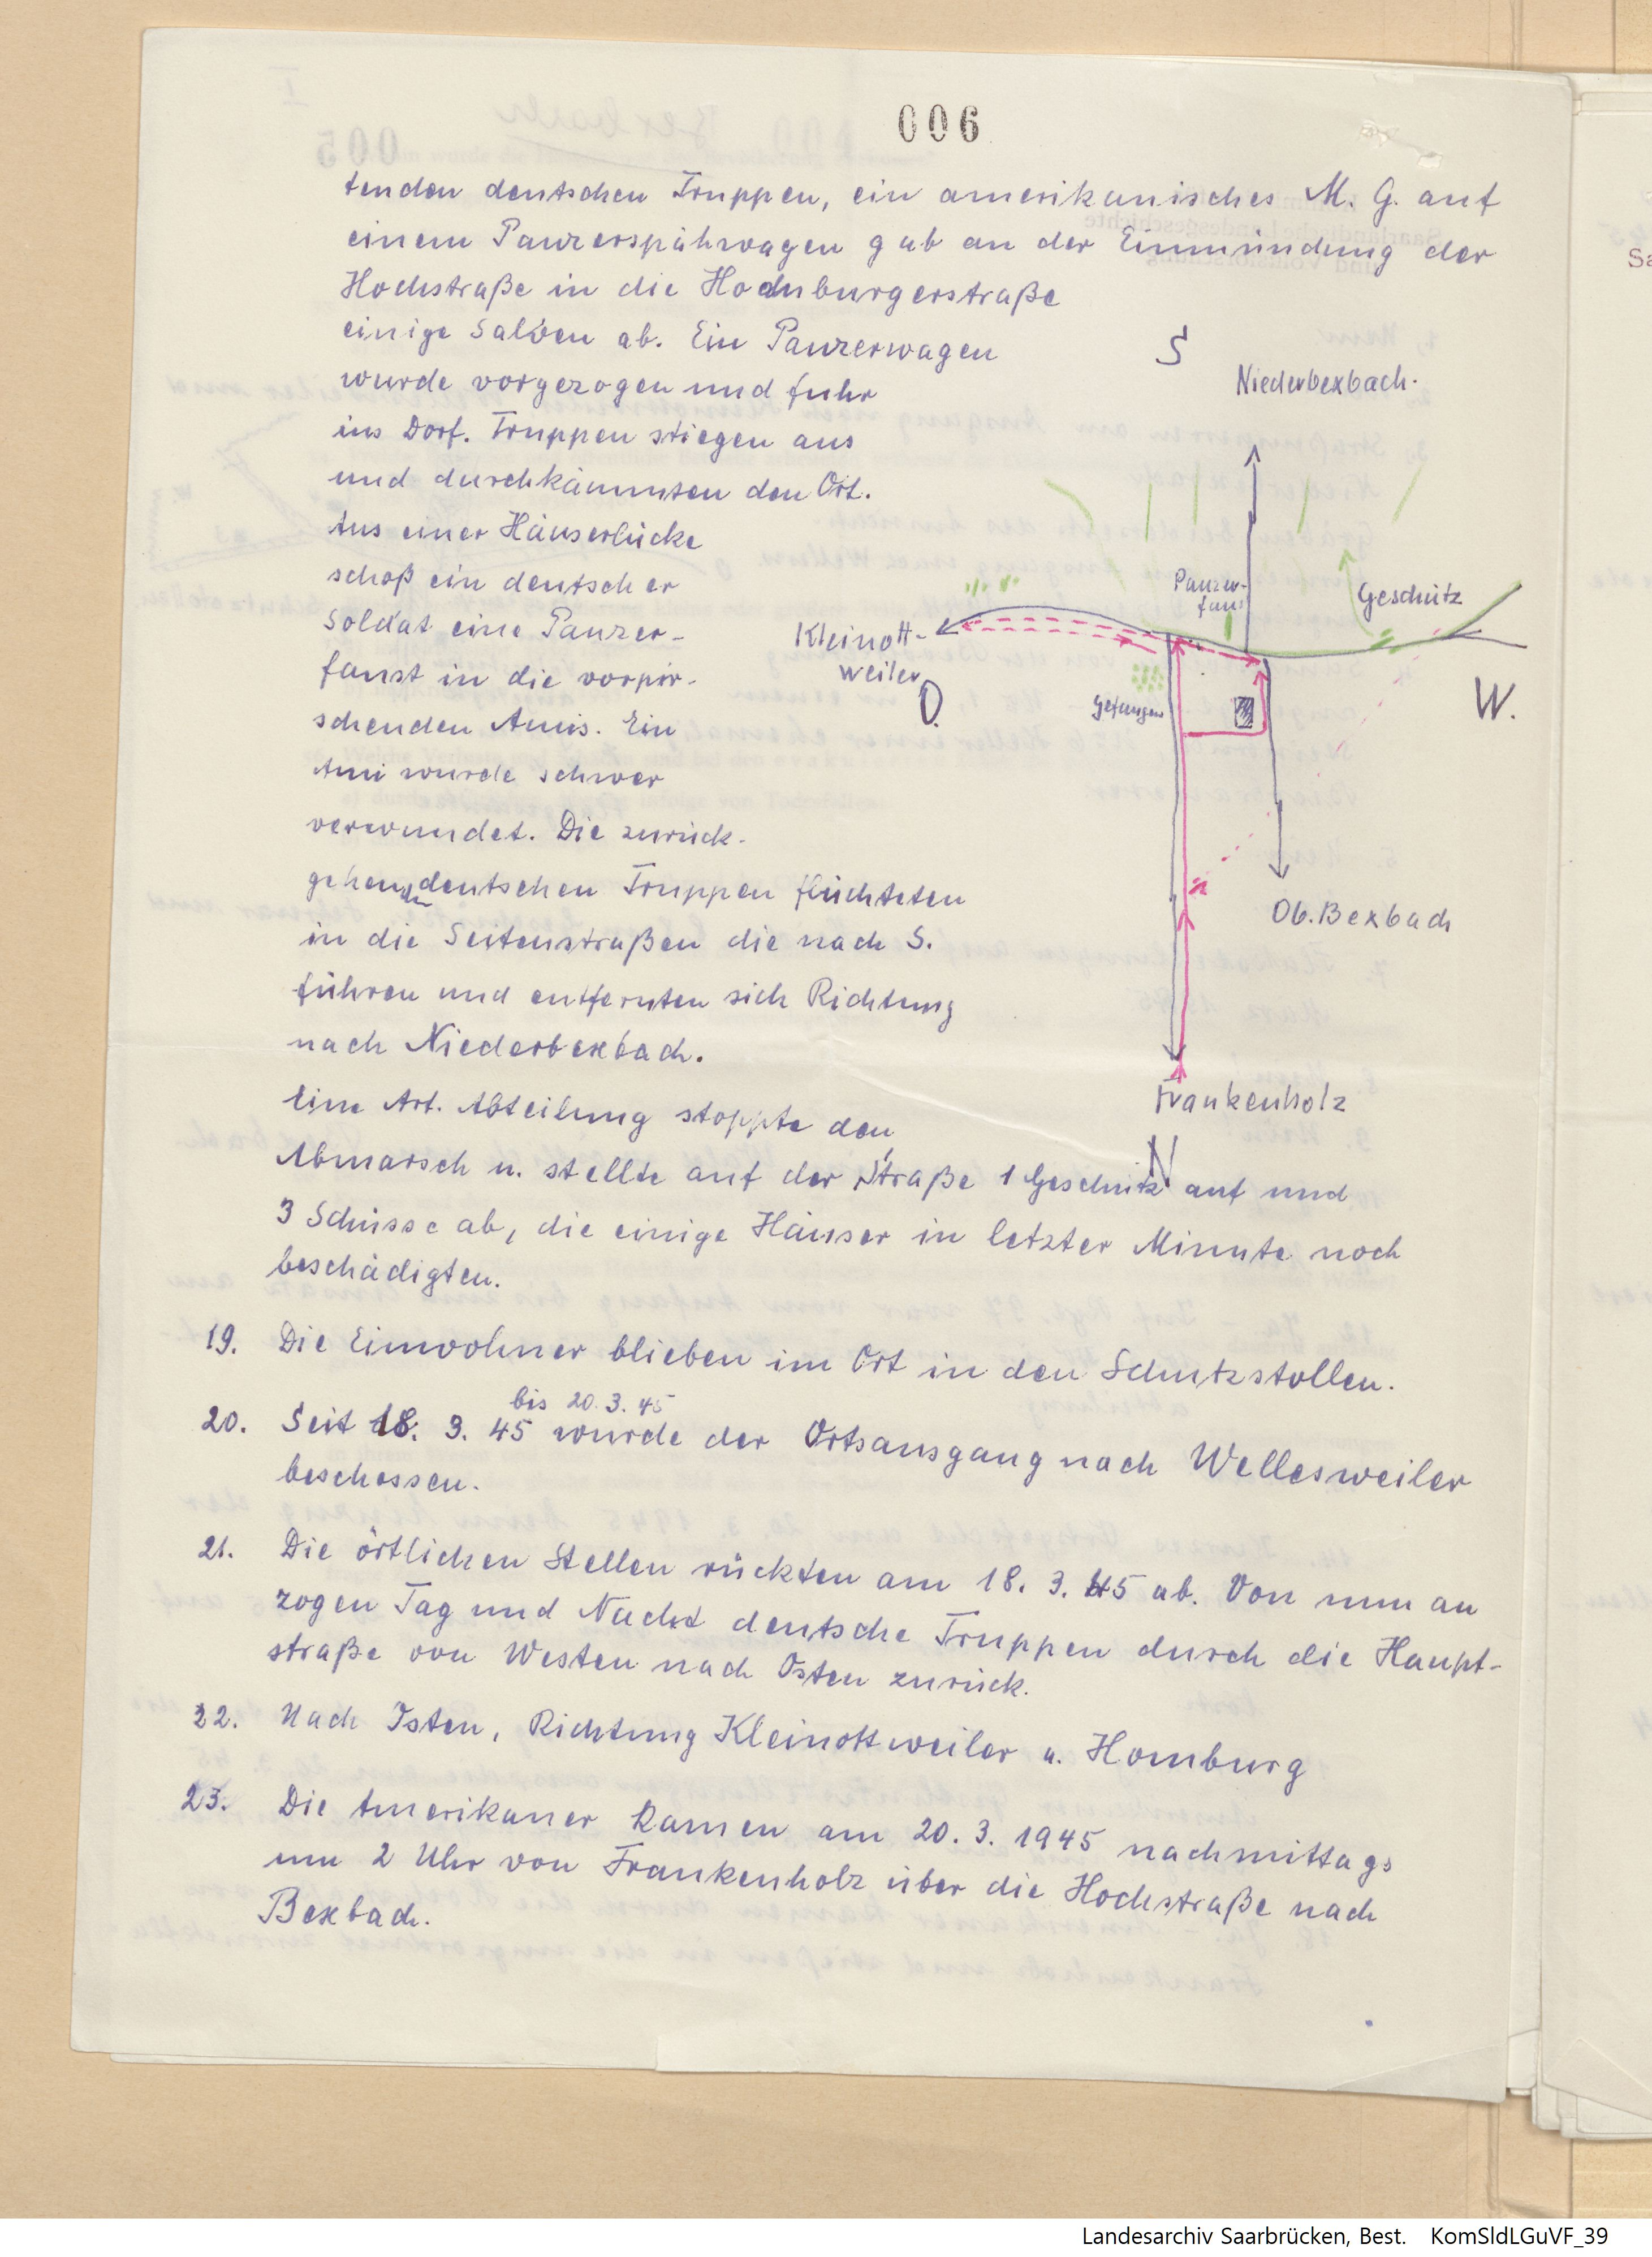 006
tenden deutschen Truppen, ein amerikanisches M. G. auf
einem Panzerspähwagen gab an der Einmündung der
Hochstraße in die Hochburgerstraße
einige Salven ab. Ein Panzerwagen
wurde vorgezogen und fuhr
ins Dorf. Truppen stiegen aus
und durchkämmten den Ort.
Aus einer Häuserlücke
schoß ein deutscher
Soldat eine Panzer-
faust in die vorpir-
schenden Amis. Ein
Ami wurde schwer
verwundet. Die zurück-
gehenden deutschen Truppen flüchteten
in die Seitenstraßen die nach S.
führen und entfernten sich Richtung
nach Niederbexbach.
Eine Art. Abteilung stoppte den
Abmarsch u. stellte auf der Straße 1 Geschütz auf und
3 Schüsse ab, die einige Häuser in letzter Minute noch
beschädigten.
S
Niederbexbach.
Panzer-
faust
Geschütz
Kleinott-
weiler
O.
Gefangen
W.
Ob. Bexbach
Frankenholz
N
19. Die Einwohner blieben im Ort in den Schutzstollen.
bis 20.3.45
20. Seit 18. 3. 45 wurde der Ortsausgang nach Wellesweiler
beschossen.
21. Die örtlichen Stellen rückten am 18. 3. 45 ab. Von nun an
zogen Tag und Nacht deutsche Truppen durch die Haupt-
straße von Westen nach Osten zurück.
22. Nach Osten, Richtung Kleinottweiler u. Homburg
23. Die Amerikaner kamen am 20. 3. 1945 nachmittags
um 2 Uhr von Frankenholz über die Hochstraße nach
Bexbach.
Landesarchiv Saarbrücken, Best. KomSldLGuVF_39